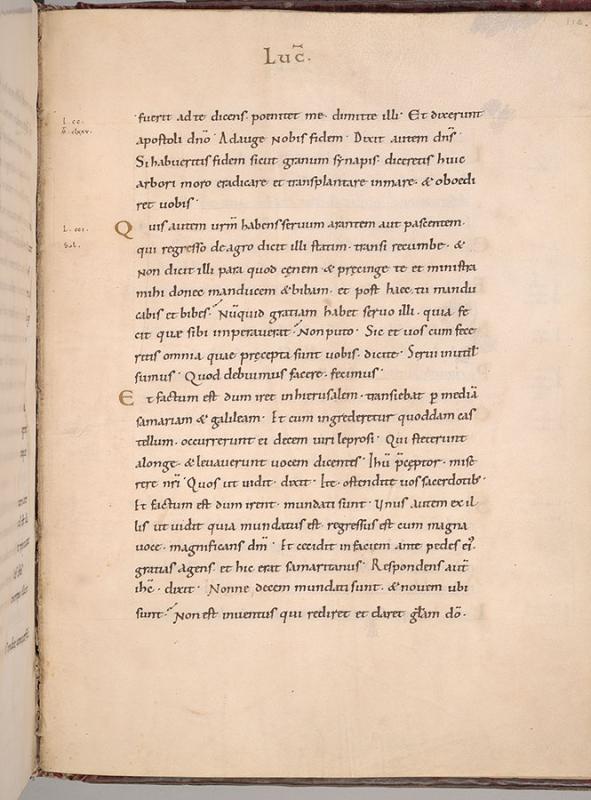 Luc̄.
118.
fuerit ad te dicens. poenitet me. dimitte illi. Et dixerunt
l. cc.
apostoli dn̄o. Adauge nobis fidem. Dixit autem dn̄s.
Si habueritis fidem sicut granum synapis. diceretis huic
arbori moro eradicare et transplantare in mare. & oboedi
ret uobis.
Quis autem ur̄m habens seruum arantem aut pascentem.
l. cci.
qui regresso de agro dicit illi statim. transi recumbe. &
non dicit illi para quod cęnem & pręcinge te et ministra
mihi donec manducem & bibam. et post haec tu mandu
cabis et bibes. Nūquid gratiam habet seruo illi. quia fe
cit quae sibi imperauerat. Non puto. Sic et uos cum fece
ritis omnia quae pręcepta sunt uobis. dicite. Serui inutiƚ
sumus. Quod debuimus facere. fecimus.
Et factum est dum iret in hierusalem. transiebat p̱ mediā
samariam & galileam. Et cum ingrederetur quoddam cas
tellum. occurrerunt ei decem uiri leprosi. Qui steterunt
a longe. & leuauerunt uocem dicentes. Ihū p̄ceptor. mise
rere nr̄i. Quos ut uidit. dixit. Ite. ostendite uos sacerdotib.
Et factum est dum irent. mundati sunt. Unus autem ex il
lis ut uidit quia mundatus est. regressus est cum magna
uoce. magnificans dm̄. Et cecidit in faciem ante pedes ei.
gratias agens. et hic erat samaritanus. Respondens aut̄
ihc̄. dixit. Nonne decem mundati sunt. & nouem ubi
sunt. Non est inuentus qui rediret et daret gƚam dō.